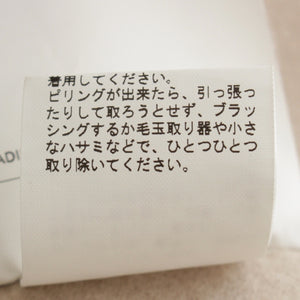 着用してください。
ピリングが出来たら、引っ張っ
たりして取ろうとせず、ブラッ
シングするか毛玉取り器や小さ
なハサミなどで、ひとつひとつ
取り除いてください。
ADI